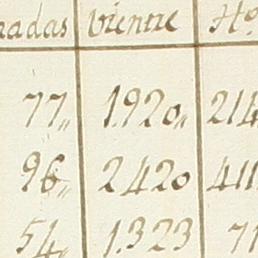 nadas vientre Ho
77,, 1.920,, 214
96,, 2.420 411
54,, 1.323 71